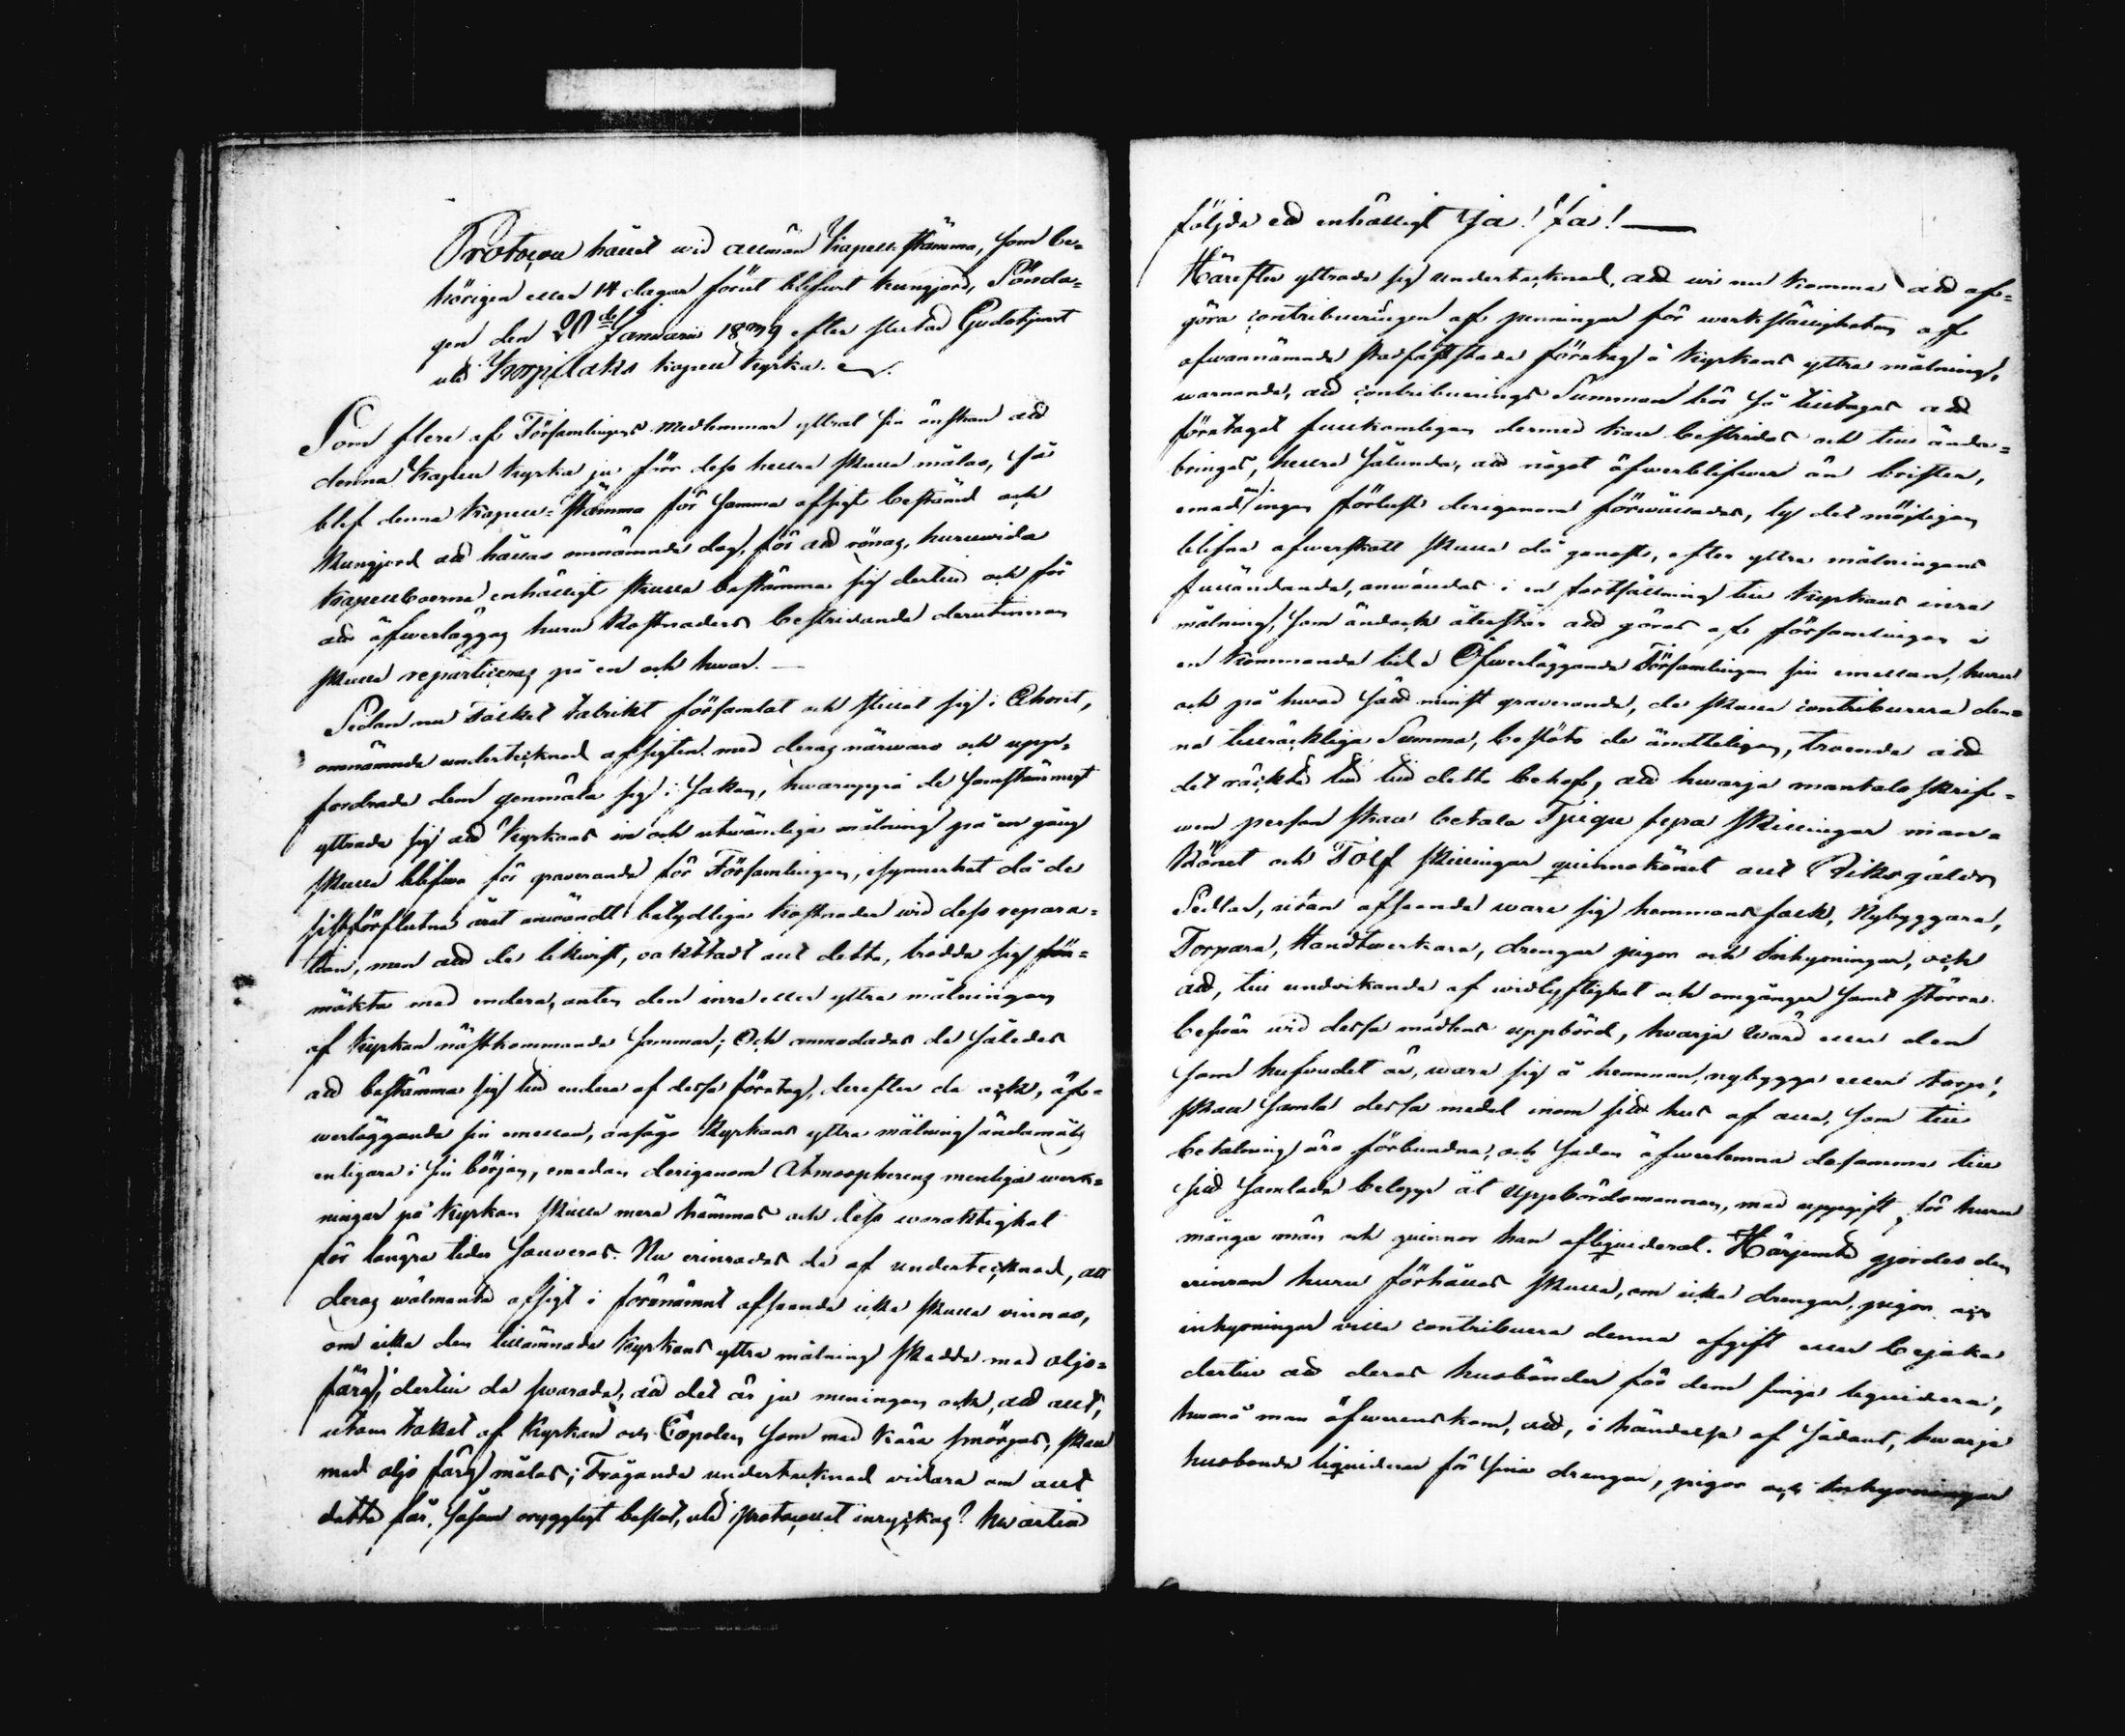 Protocoll hållit wid allmän Kapell-stämma, som be=
hörigen eller 14 dagar förut blifwit kungjord, Sönda=
gen den 20de Januarii 1839 efter slutad Gudstjenst
uti Korpilaks kapell kyrka.
Som flere af Församlingens medlemmar yttrat sin önskan att
denna Kapell kyrka ju förr dess hellre skulle målas, så
blef denna Kapell=stämma för samma afsigt bestämd och
kungjord att hållas omnämnde dag, för att rönas, huruwida
Kapellboerne enhälligt skulle bestämma sig dertill och för
att öfwerläggas huru kostnadens bestridande derutinnan
skulle reparticeras på en och hwar. —
Sedan nu Folket talrikt församlat och stillat sig i Choret,
omnämnde undertecknad afsigten med deras närwaro och upp=
fordrade dem genmäla sig i saken, hwaruppå de samstämmigt
yttrade sig att Kyrkans in och utwändiga målning på en gång
skulle blifwa för graverande för Församlingen, isynnerhet då de
sistförflutna året anwändt betydliga kostnader wid dess repara=
tion, men att de likwist, oaktadt allt detta, trodde sig för=
mäkta med endera, anten den inre eller yttre målningen
af Kyrkan nästkommande sommar; Och anmodades de således
att bestämma sig till endera af dessa företag, derefter de ock, öf=
werläggande sin emellan, ansågo Kyrkans yttre målning ändamåls
enligare i sin början, emedan derigenom Atmospherens menliga werk=
ningar på Kyrkan skulle mera hämmas och dess waraktighet
för längre tider souveras. Nu erinrades de af undertecknad, att
deras wälmente afsigt i förenämnt afseende icke skulle vinnas,
om icke den tillämnade Kyrkans yttre målning skedde med oljo=
färg, dertill de swarade, att det är ju meningen ock, att allt,
utom taket af Kyrkan och Copolen som med tjära smörjes, skall
med oljo färg målas; Frågande undertecknad vidare om allt
detta får, såsom oryggligt beslut, uti protocollet inryckas? hwartill
följde ett enhälligt Ja! Ja! —
Härefter yttrade sig undertecknad, att wi nu komma att af=
göra contribueringen af penningar för werkställigheten af
ofwannämnde stadfästade företag å Kyrkans yttre målning,
warnande, att contribuerings Summan bör så tilltagas att
företaget fullkomligen dermed kan bestridas och till ända=
bringas, hellre sålunda, att något öfwerblifwer än brister,
emedan ingen förlust derigenom förwållades, ty det möjligen
blifne öfwerskott skulle då genast, efter yttre målningens
fulländande, anwändas i en fortsättning till Kyrkans inre
målning, som ändock återstår att göras af församlingen i
en kommande tid. Öfwerläggande Församlingen sin emellan, huru
och på hwad sätt minst graverande, de skulle contribuera den=
na tillräckliga Summa, beslöto de ändteligen, troende att
det räckte till till detta behof, att hwarje mantals skrif=
wen person skall betala Tjugu fyra skillingar man=
könet och Tolf skillingar qvinnokönet allt Riksgälds
Sedlar, utan afseende ware sig hemmans folk, Nybyggare,
Torpare, Handtwerkare, drengar pigor och Inhysningar, och
att, till undvikande af widlyftighet och omgånger samt större
beswär wid dessa medlens uppbörd, hwarje Wärd eller den
som hufwudet är, ware sig å hemman, nybygge eller torp,
skall samla dessa medel inom sitt hus af alla, som till
betalning äro förbundne, och sedan öfwerlemna desamma till
sitt samlade belopp åt Uppbördsmannen, med uppgift, för huru
många män och qvinnor han afliqviderat. Härjemte gjordes den
erinran huru förhållas skulle, om icke drengar, pigor och
inhysningar wille contribuera denna afgift eller bejaka
dertill att deras husbönder för dem finge liqvidera,
hwarå man öfwerenskom, att, i händelse af sådant, hwarje
husbonde liqviderar för sina drengar, pigor och Inhysningar